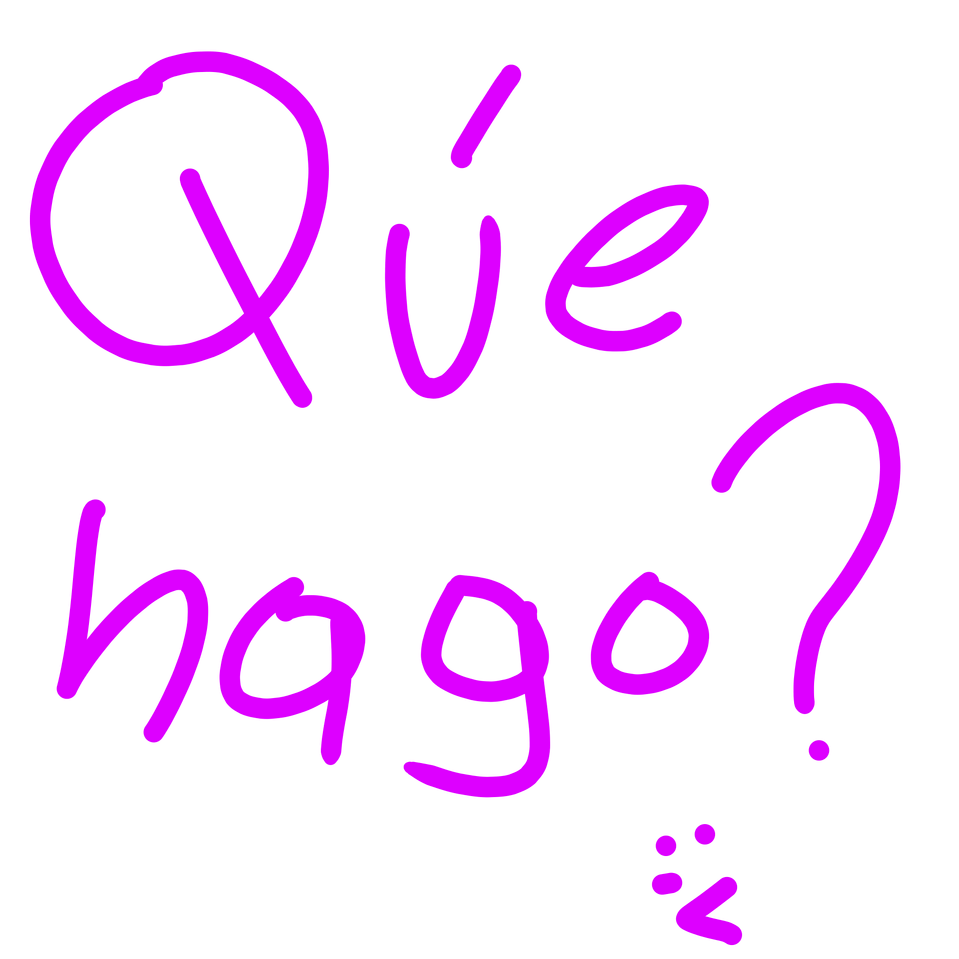 Qúe
hago?